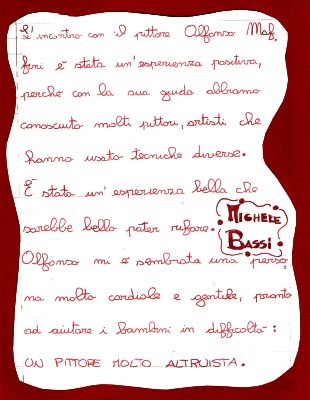 L'incontro con il pittore Alfonso Maf.
fini è stata un'esperienza positiva,
perchè con la sua guida abbiamo
conosciuto molti pittori, artisti che
hanno usato tecniche diverse.
È stata un'esperienza bella che
sarebbe bello poter rifare.
MICHELE
BASSI
Alfonso mi è sembrata una perso
na molto cordiale e gentile, pronta
ad aiutare i bambini in difficoltà:
UN PITTORE MOLTO ALTRUISTA.